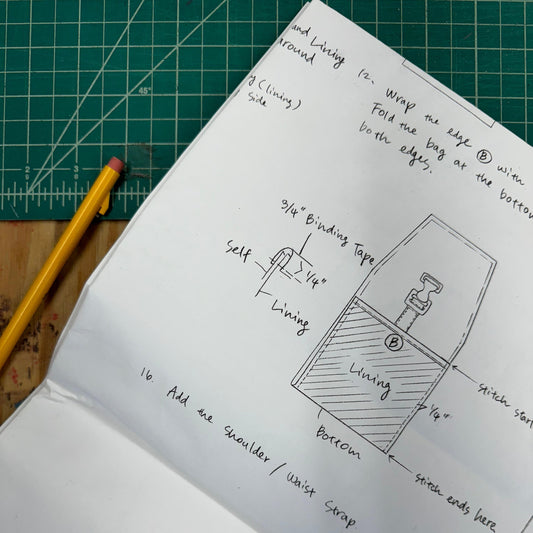 and Lining
around
y (lining)
side
12. Wrap the edge Ⓑ with
Fold the bag at the bottom
both edges.
3/4" Binding Tape
Self
1/4"
Lining
Ⓑ
Lining
1/4"
Bottom
stitch start
stitch ends here
16. Add the shoulder / waist strap.
45°